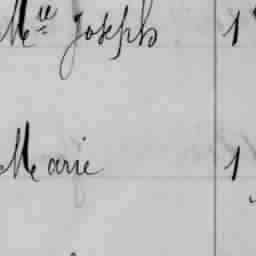 Mie Joseph 1
Marie 1